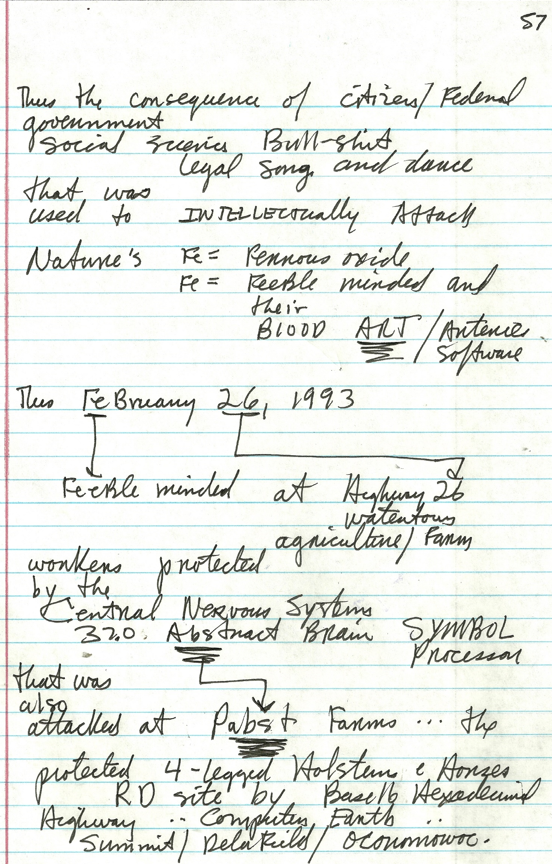 57
Thus the consequence of citizen/Federal
government
social sciences Bull-shit
legal song and dance
that was
used to INTELLECTUALLY Attack
Nature's Fe = Ferrous oxide
Fe = FeeBle minded and
their
BLOOD ART/Arteries
Software
Thus FeBruary 26, 1993
FeeBle minded at Highway 26
Watertous
agriculture/Farm
workers protected
by the
Central Nervous Systems
320. Abstract Brain SYMBOL
Processor
that was
also
attacked at Pabst Farms ... the
protected 4-legged Holstein & Horses
RD site by Base16 Hexadecimal
Highway .. Computer Earth ..
Summit/Delafield/Oconomowoc.